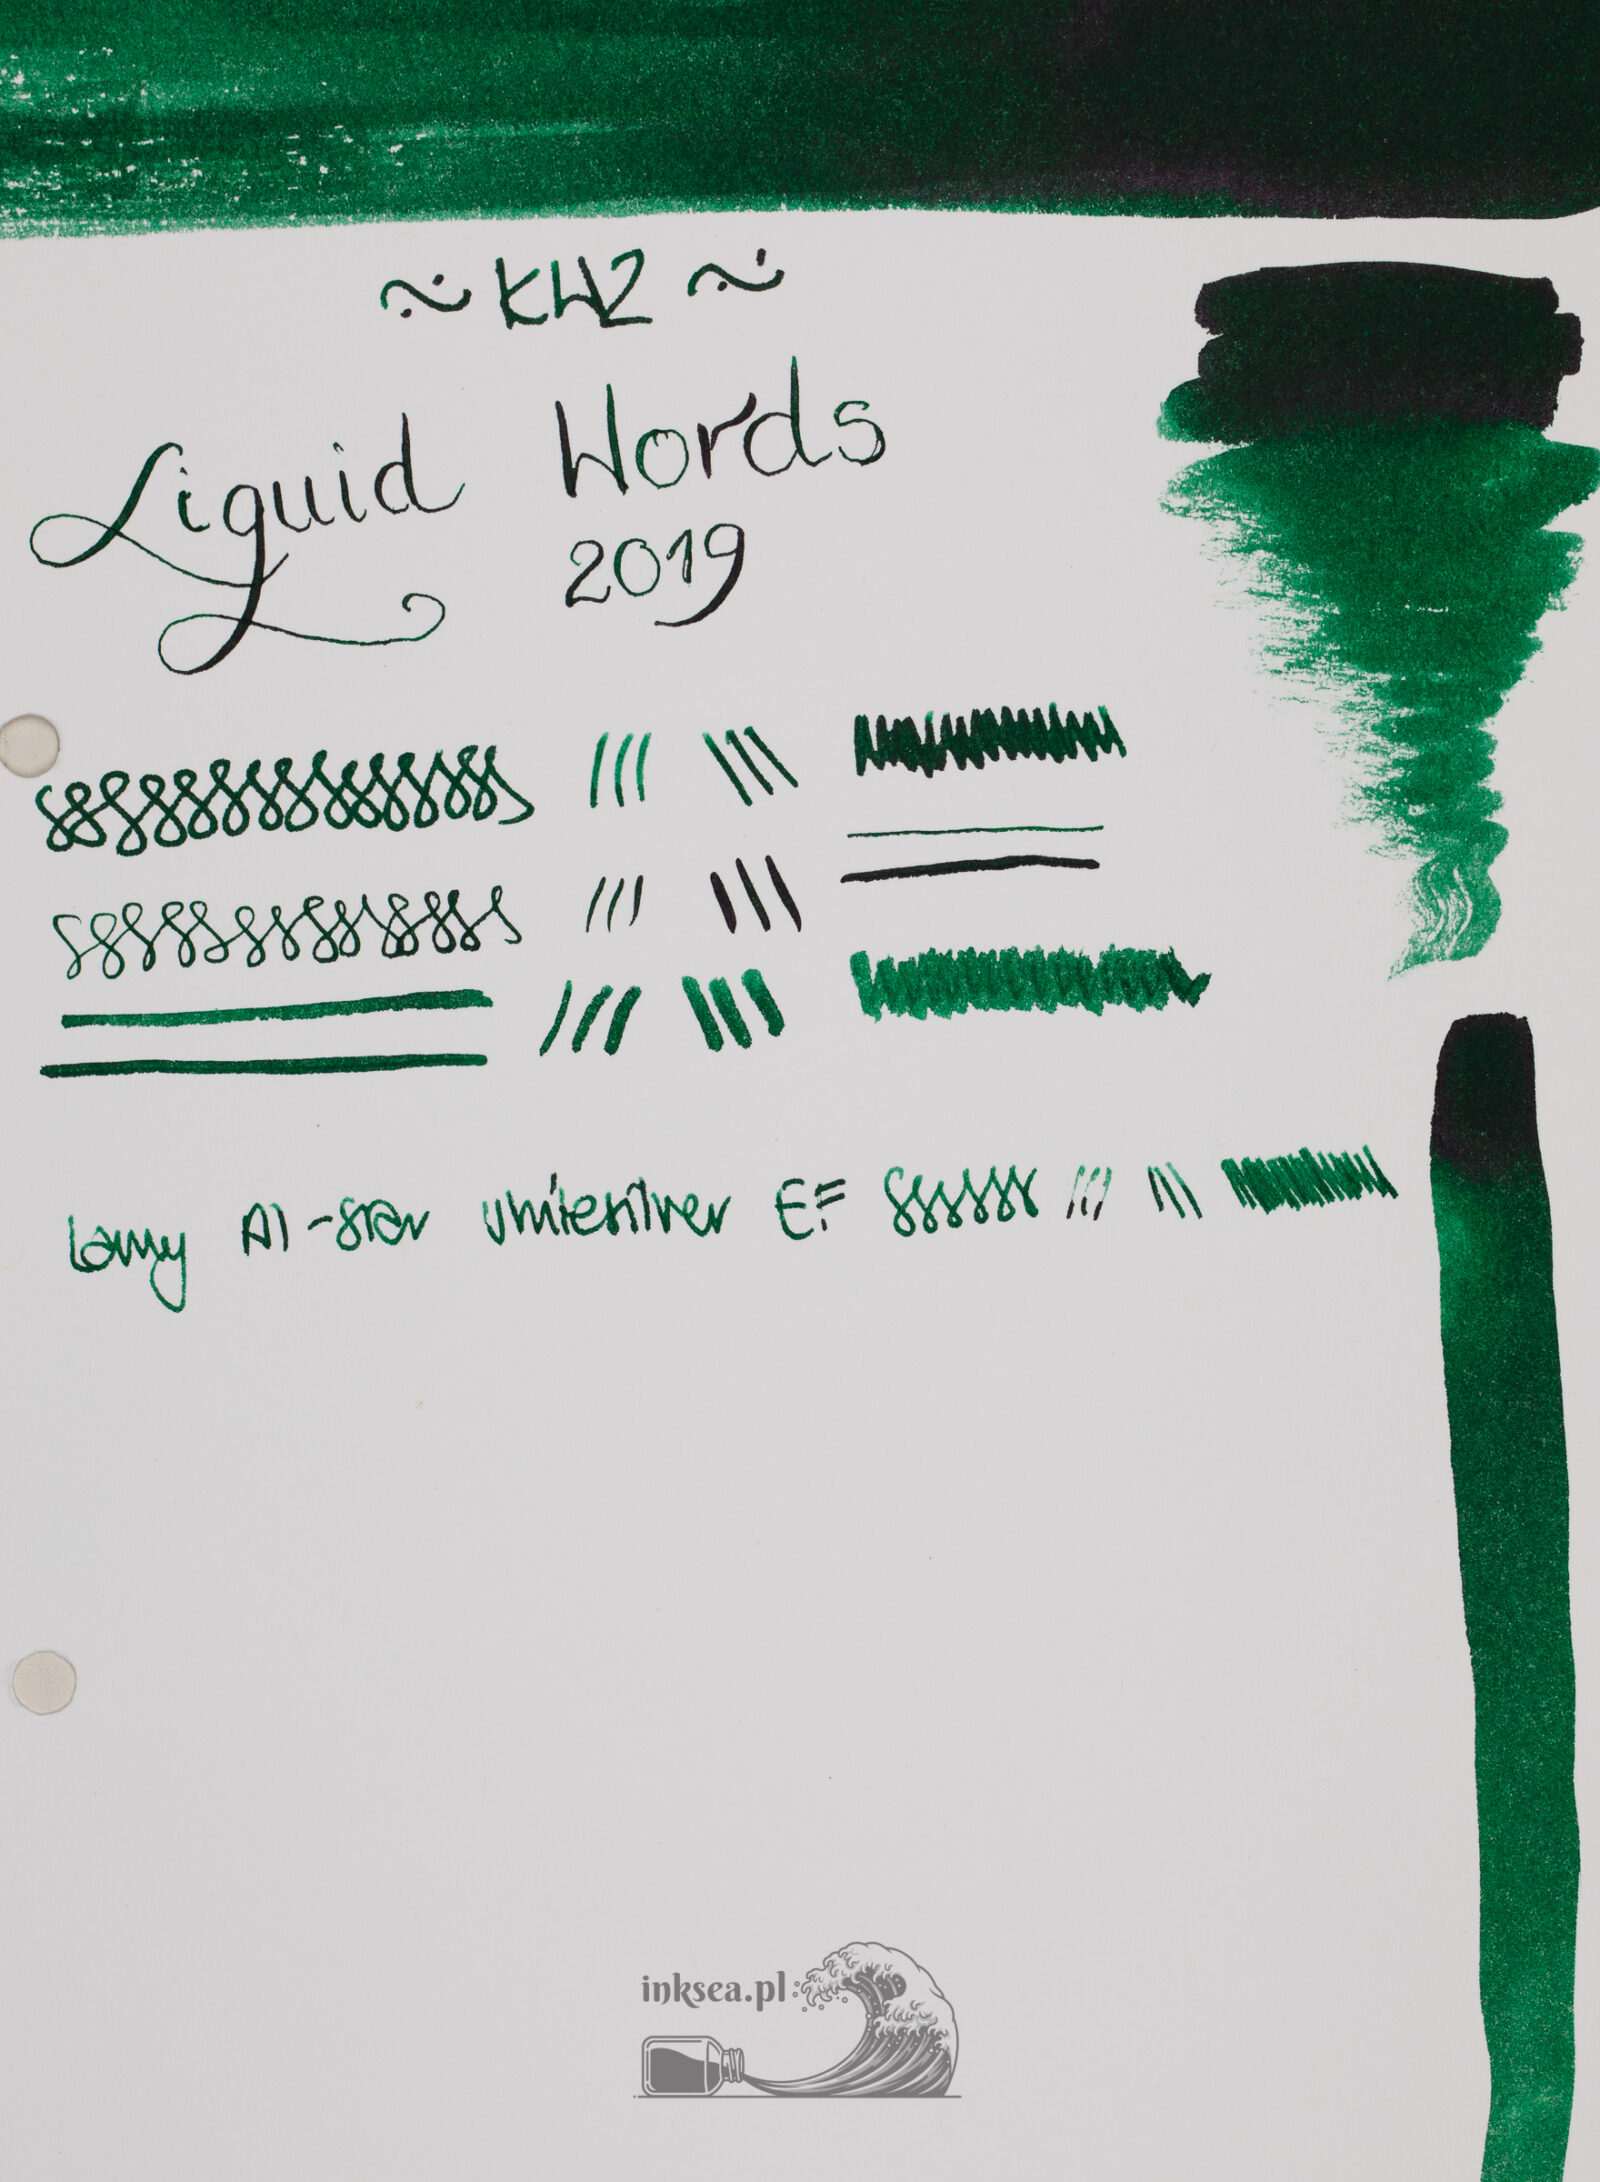 ~ KWZ ~
Liquid Words
2019
Lamy Al-star whitesilver EF
inksea.pl